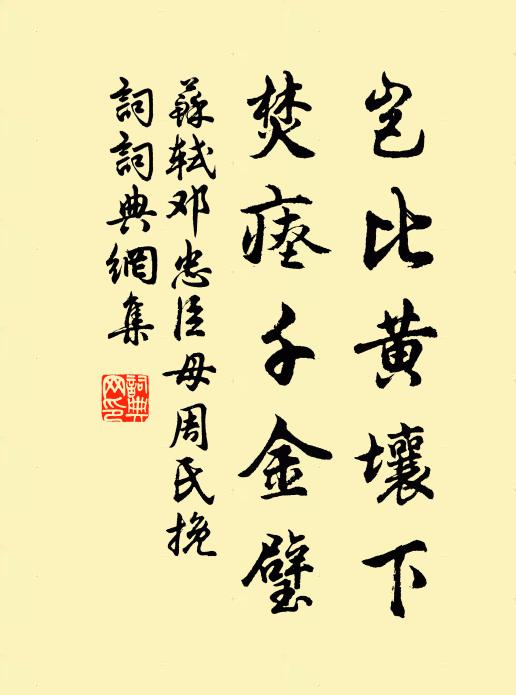 岂比黄壤下
焚瘗千金璧
苏轼邓忠臣母周氏挽
词词典網集
詞典
网印